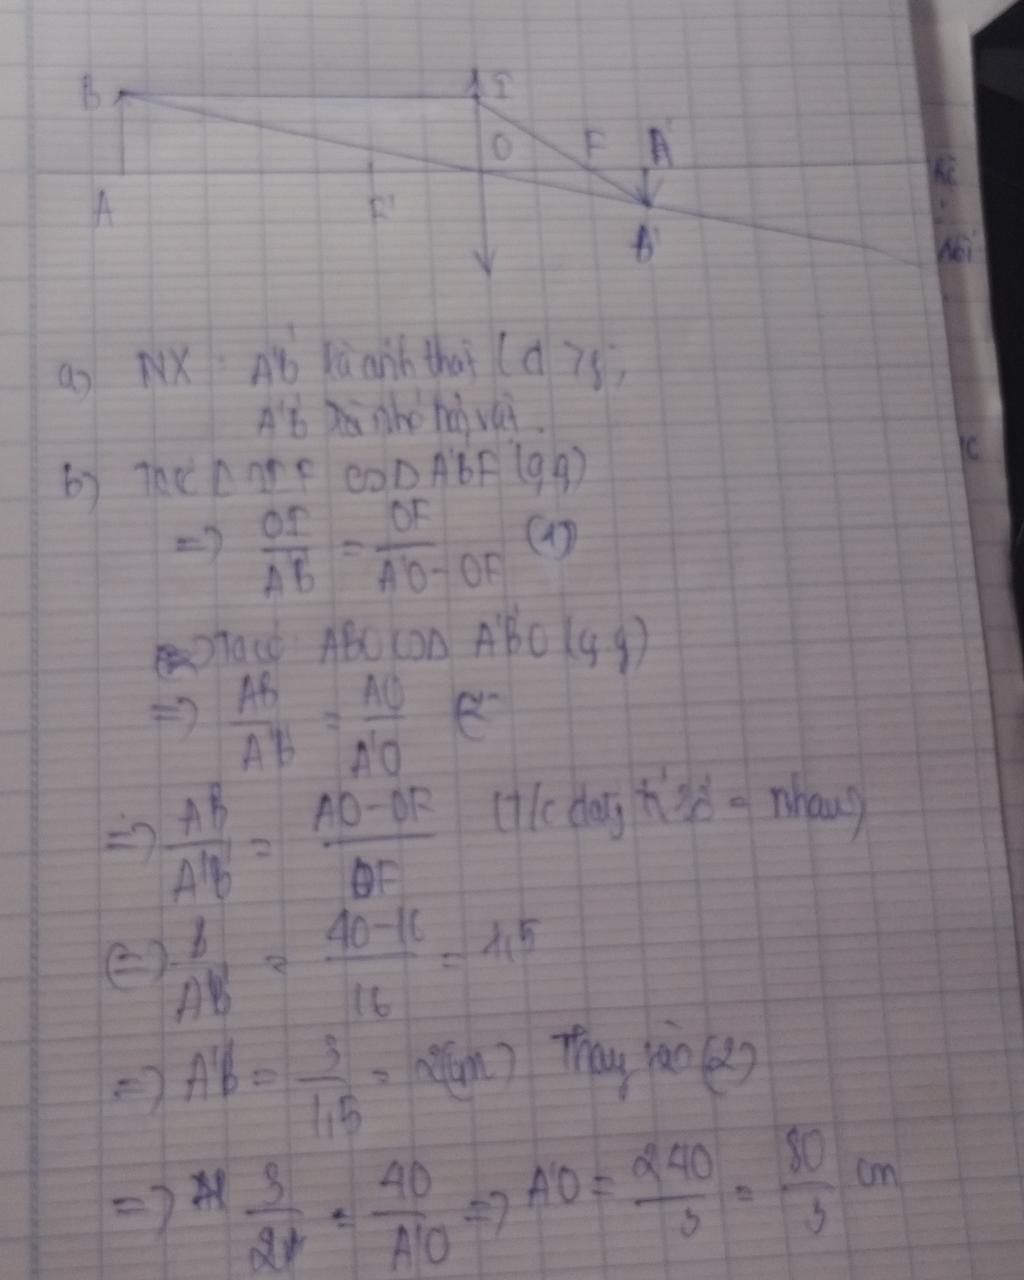 B I
O F A'
A F'
B'
a) NX: A'B' là ảnh thật (d > f;
A'B' là nhỏ hơn vật.
b) Ta có Δ OIF ∽ Δ A'B'F (g.g)
=> OI/A'B' = OF/A'O - OF (1)
Ta có ABO ∽ Δ A'B'O (g.g)
=> AB/A'B' = AO/A'O (2
=> AB/A'B' = AO - OF/OF (T/c dãy tỉ số = nhau)
(=) 3/A'B' = 40-16/16 = 1,5
=> A'B' = 3/1,5 = 2(cm) Thay vào (2)
=> 3/2 = 40/A'O => A'O = 240/3 = 80/3 cm